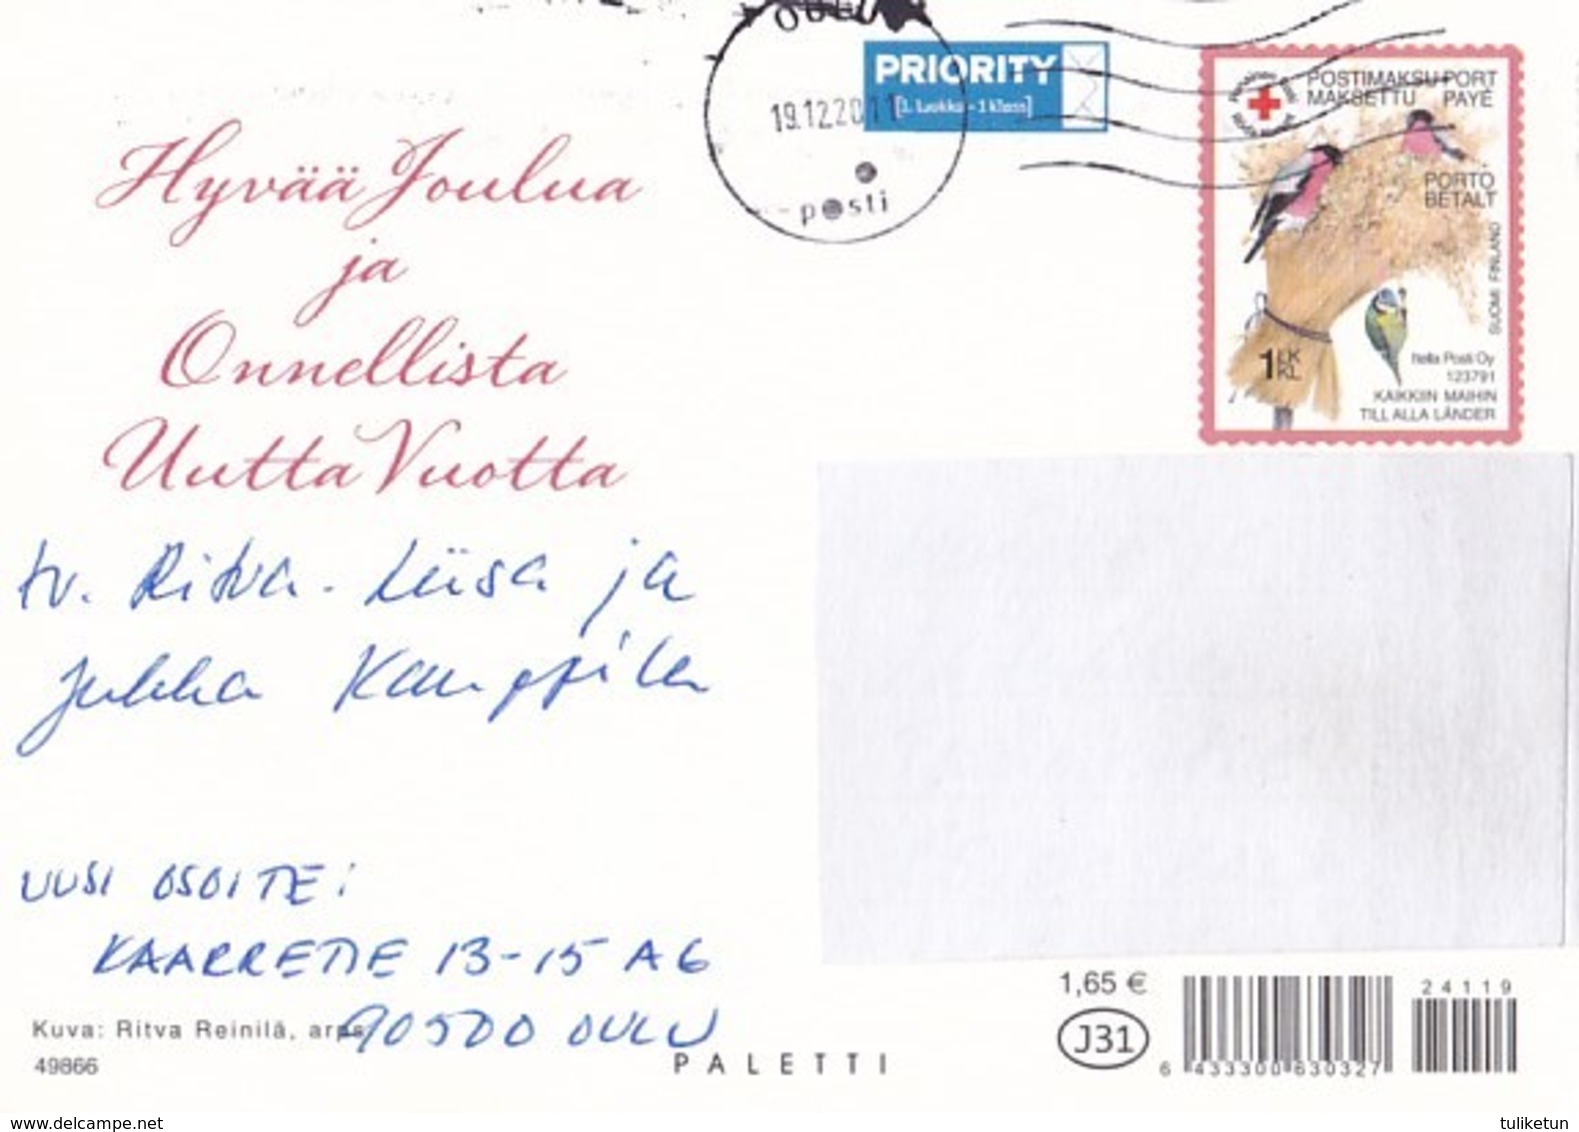 OULU
PRIORITY
[1. Luokka - 1 klass]
19.12.2011
posti
POSTIMAKSU PORT
MAKSETTU PAYÉ
PORTO
BETALT
SUOMI FINLAND
1 LK
KL
Itella Posti Oy
123791
KAIKKIIN MAIHIN
TILL ALLA LÄNDER
Hyvää Joulua
ja
Onnellista
Uutta Vuotta
tv. Ritva-Liisa ja
Jukka
UUSI OSOITE:
KAARRETIE 13-15 A6
90500 OULU
Kuva: Ritva Reinilä, arps
49866
PALETTI
1,65 €
J31
6 433300 630327
24119
www.delcampe.net
tuliketun